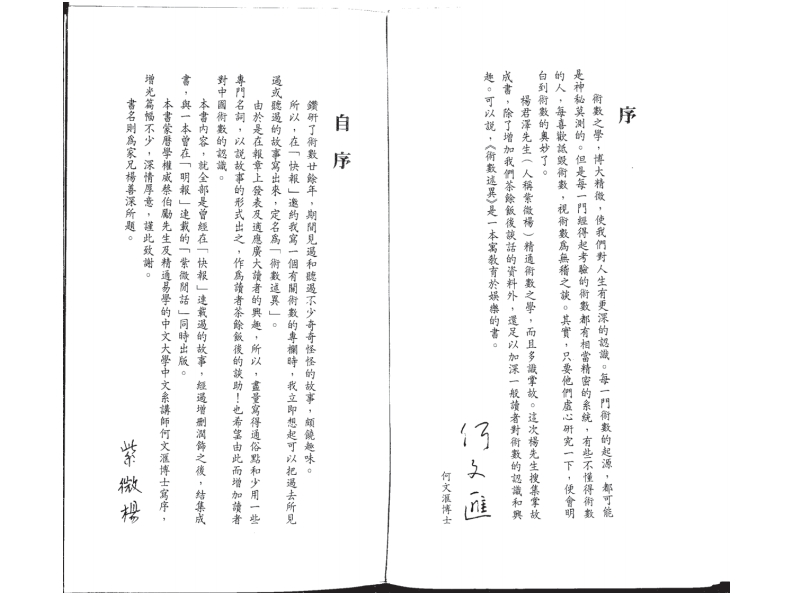 序
術數之學，博大精微，使我們對人生有更深的認識。每一門術數的起源，都可能
是神秘莫測的。但是每一門經得起考驗的術數都有相當精密的系統，有些不懂得術數
的人，每喜歡詆毀術數，視術數為無稽之談。其實，只要他們虛心研究一下，便會明
白到術數的奧妙了。
楊君澤先生（人稱紫微楊）精通術數之學，而且多識掌故。這次楊先生搜集掌故
成書，除了增加我們茶餘飯後談話的資料外，還足以加深一般讀者對術數的認識和興
趣。可以說，《術數述異》是一本寓教育於娛樂的書。
何文滙
何文滙博士
自序
鑽研了術數廿餘年，期間見過和聽過不少奇奇怪怪的故事，頗饒趣味。
所以，在「快報」邀約我寫一個有關術數的專欄時，我立即想起可以把過去所見
過或聽過的故事寫出來，定名為「術數述異」。
由於是在報章上發表及適應廣大讀者的興趣，所以，盡量寫得通俗點和少用一些
專門名詞，以說故事的形式出之，作為讀者茶餘飯後的談助！也希望由此而增加讀者
對中國術數的認識。
本書內容，就全部是曾經在「快報」連載過的故事，經過增刪潤飾之後，結集成
書，與一本曾在「明報」連載的「紫微閒話」同時出版。
本書蒙曆學權威蔡伯勵先生及精通易學的中文大學中文系講師何文滙博士寫序，
增光篇幅不少，深情厚意，謹此致謝。
書名則為家兄楊善深所題。
紫微楊